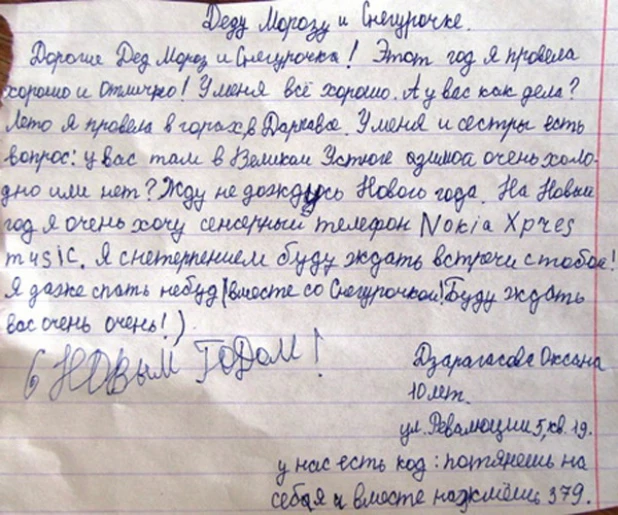 Деду Морозу и Снегурочке.
Дорогие Дед Мороз и Снегурочка! Этот год я провела
хорошо и отлично! У меня всё хорошо. А у вас как дела?
Лето я провела в горах, в Даргавсе. У меня и сестры есть
вопрос: у вас там в Великом Устюге зимой очень холо-
дно или нет? Жду не дождусь Нового года. На Новый
год я очень хочу сенсерный телефон Nokia Xpres
music. Я с нетерпением буду ждать встречи с тобое!
Я даже спать небуд (вместе со Снегурочкой! Буду ждать
вас очень очень!)
С НОВЫМ ГОДОМ!
Дзарагасова Оксана
10 лет.
ул. Революции 5, кв. 19.
у нас есть код: потянешь на
себя и вместе нажмёшь 379.